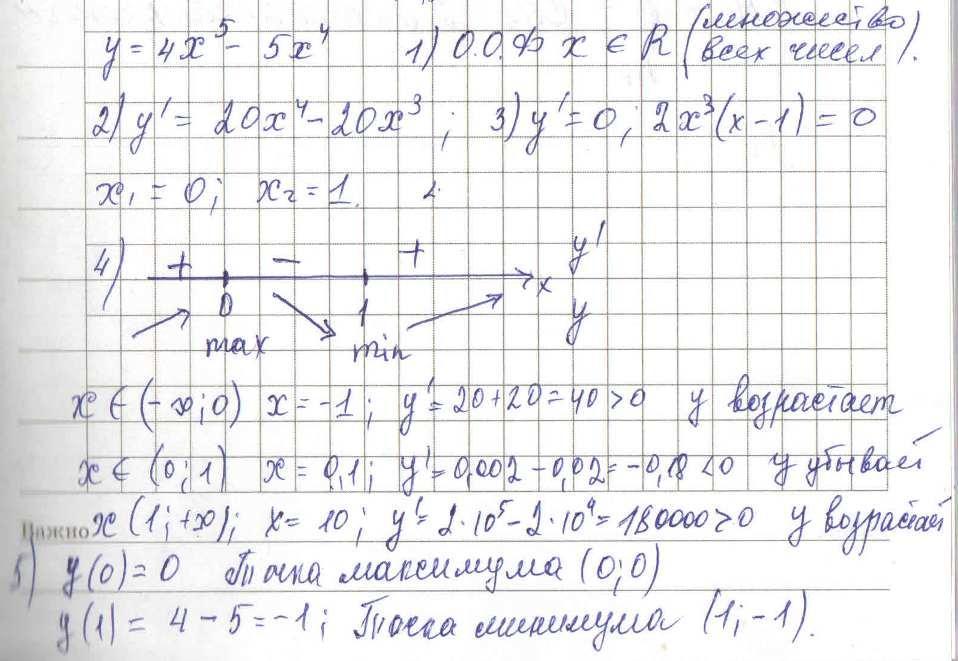 y = 4x⁵ - 5x⁴ 1) О.О.Ф x ∈ R (множество всех чисел).
2) y' = 20x⁴ - 20x³ ; 3) y' = 0 ; 2x³(x - 1) = 0
x₁ = 0 ; x₂ = 1.
4) + - + y'
0 1 x y
max min
x ∈ (-∞; 0) x = -1 ; y' = 20 + 20 = 40 > 0 y возрастает
x ∈ (0; 1) x = 0,1 ; y' = 0,002 - 0,02 = -0,18 < 0 y убывает
Важно x (1; +∞) ; x = 10 ; y' = 2·10⁵ - 2·10⁴ = 180000 > 0 y возрастает
5) y(0) = 0 Точка максимума (0; 0)
y(1) = 4 - 5 = -1 ; Точка минимума (1; -1).